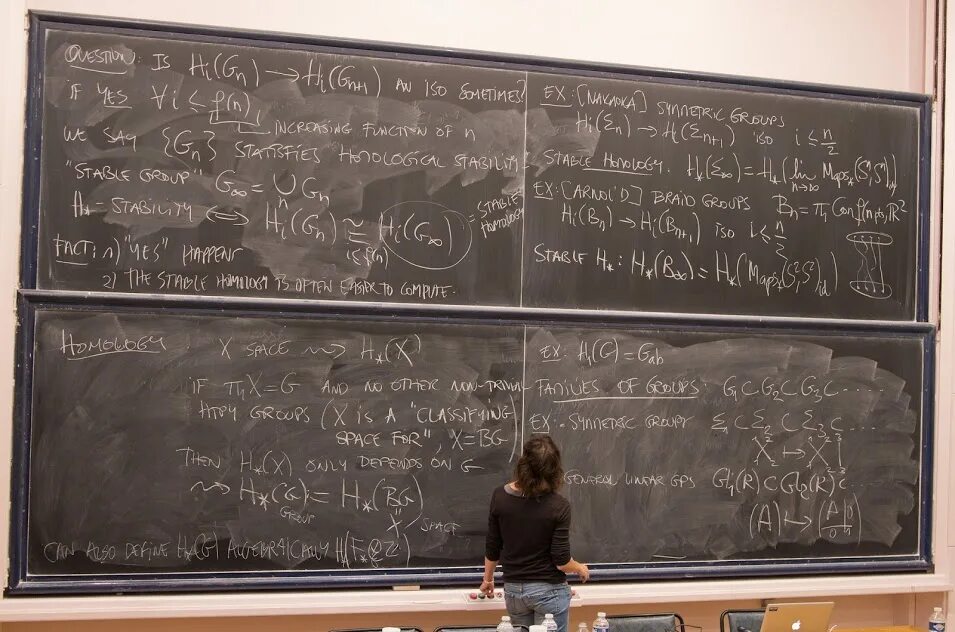 QUESTION: IS Hi(Gn) → Hi(Gn+1) AN ISO SOMETIMES?
IF YES ∀i ≤ f(n)
INCREASING FUNCTION OF n
WE SAY {Gn} SATISFIES HOMOLOGICAL STABILITY
"STABLE GROUP" G∞ = ∪n Gn
H*-STABILITY ⇔ Hi(Gn) ≅ Hi(G∞) = STABLE HOMOLOGY
i≤f(n)
FACT: 1) "YES" HAPPENS
2) THE STABLE HOMOLOGY IS OFTEN EASIER TO COMPUTE.
EX: [NAKAOKA] SYMMETRIC GROUPS
Hi(Σn) → Hi(Σn+1) ISO i ≤ n/2
STABLE HOMOLOGY. H*(Σ∞) = H*(lim n→∞ Maps*(Sⁿ,Sⁿ)id)
EX: [ARNOL'D] BRAID GROUPS Bn = π1 Conf(n pts, ℝ²)
Hi(Bn) → Hi(Bn+1) ISO i ≤ n/2
STABLE H*: H*(B∞) = H*(Maps*(S²,S²)id)
HOMOLOGY X SPACE ⇝ H*(X)
IF π1X = G AND NO OTHER NON-TRIVIAL
HTPY GROUPS (X IS A "CLASSIFYING
SPACE FOR", X = BG)
THEN H*(X) ONLY DEPENDS ON G
⇝ H*(G) := H*(BG)
GROUP X SPACE
CAN ALSO DEFINE H*(G) ALGEBRAICALLY
EX: H1(G) = Gab
FAMILIES OF GROUPS: G1 ⊂ G2 ⊂ G3 ⊂ ...
EX: · SYMMETRIC GROUPS Σ1 ⊂ Σ2 ⊂ Σ3 ⊂ ...
GENERAL LINEAR GPS Gl1(R) ⊂ Gl2(R) ⊂ ...
(A) ↦ (A 0 / 0 1)